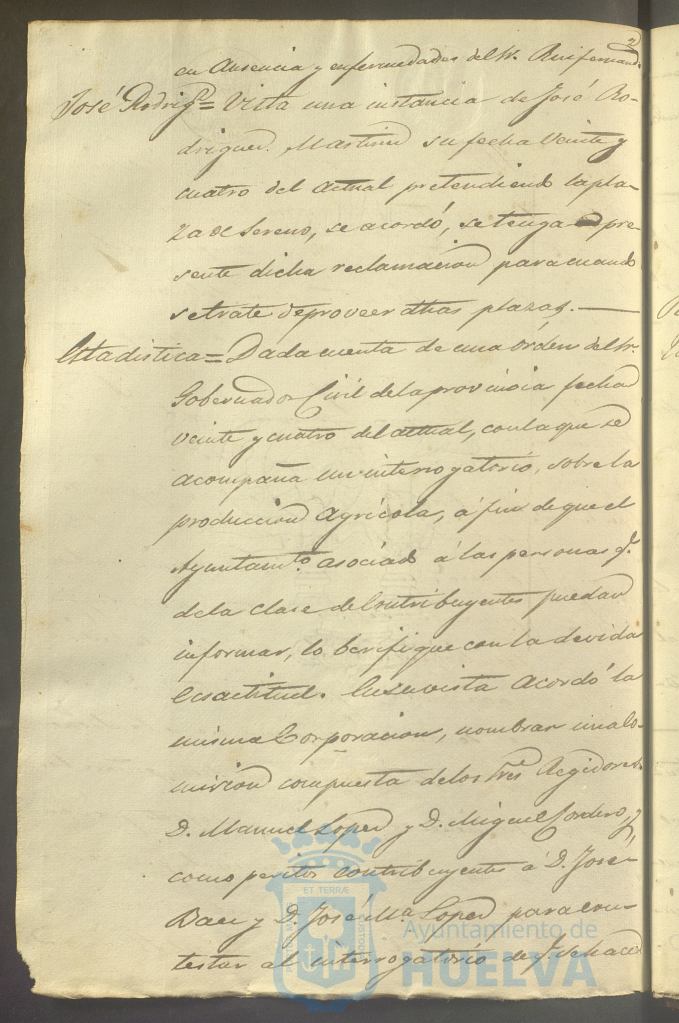 2
en Ausencia y enfermedades del Sr. Ruifernand.
José Rodrigz = Vista una instancia de José Ro-
driguez Martinez su fecha Veinte y
cuatro del actual pretendiendo la pla-
za de Sereno, se acordó, se tenga pre-
sente dicha reclamacion para cuando
se trate de proveer dhas plazas.
Estadistica = Dada cuenta de una órden del Sr.
Gobernador Civil de la provincia fecha
veinte y cuatro del actual, con la que se
acompaña un interrogatorio, sobre la
produccion Agrícola, á fin de que el
Ayuntamto. asociado á las personas q.
de la clase de Contribuyentes puedan
informar, lo berifique con la devida
Ecsactitud. En su vista Acordó la
misma Corporacion, nombrar una Co-
mision compuesta de los Sres Regidores
D. Manuel Lopez y D. Miguel Cordero, y
como peritos contribuyentes á D. José
Baez y D. José Ma. Lopez para con-
testar al interrogatorio de q. se hace
ET TERRÆ
Ayuntamiento de
HUELVA